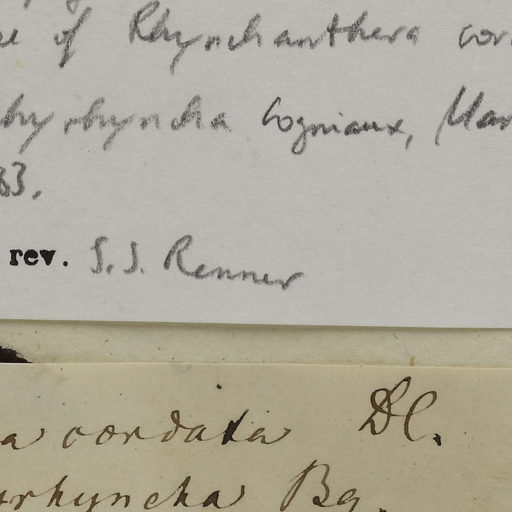 of Rhynchanthera cor
hyrhyncha Cogniaux, Mar
83.
rev. S. S. Renner
a cordata DC.
yrhyncha Bg.